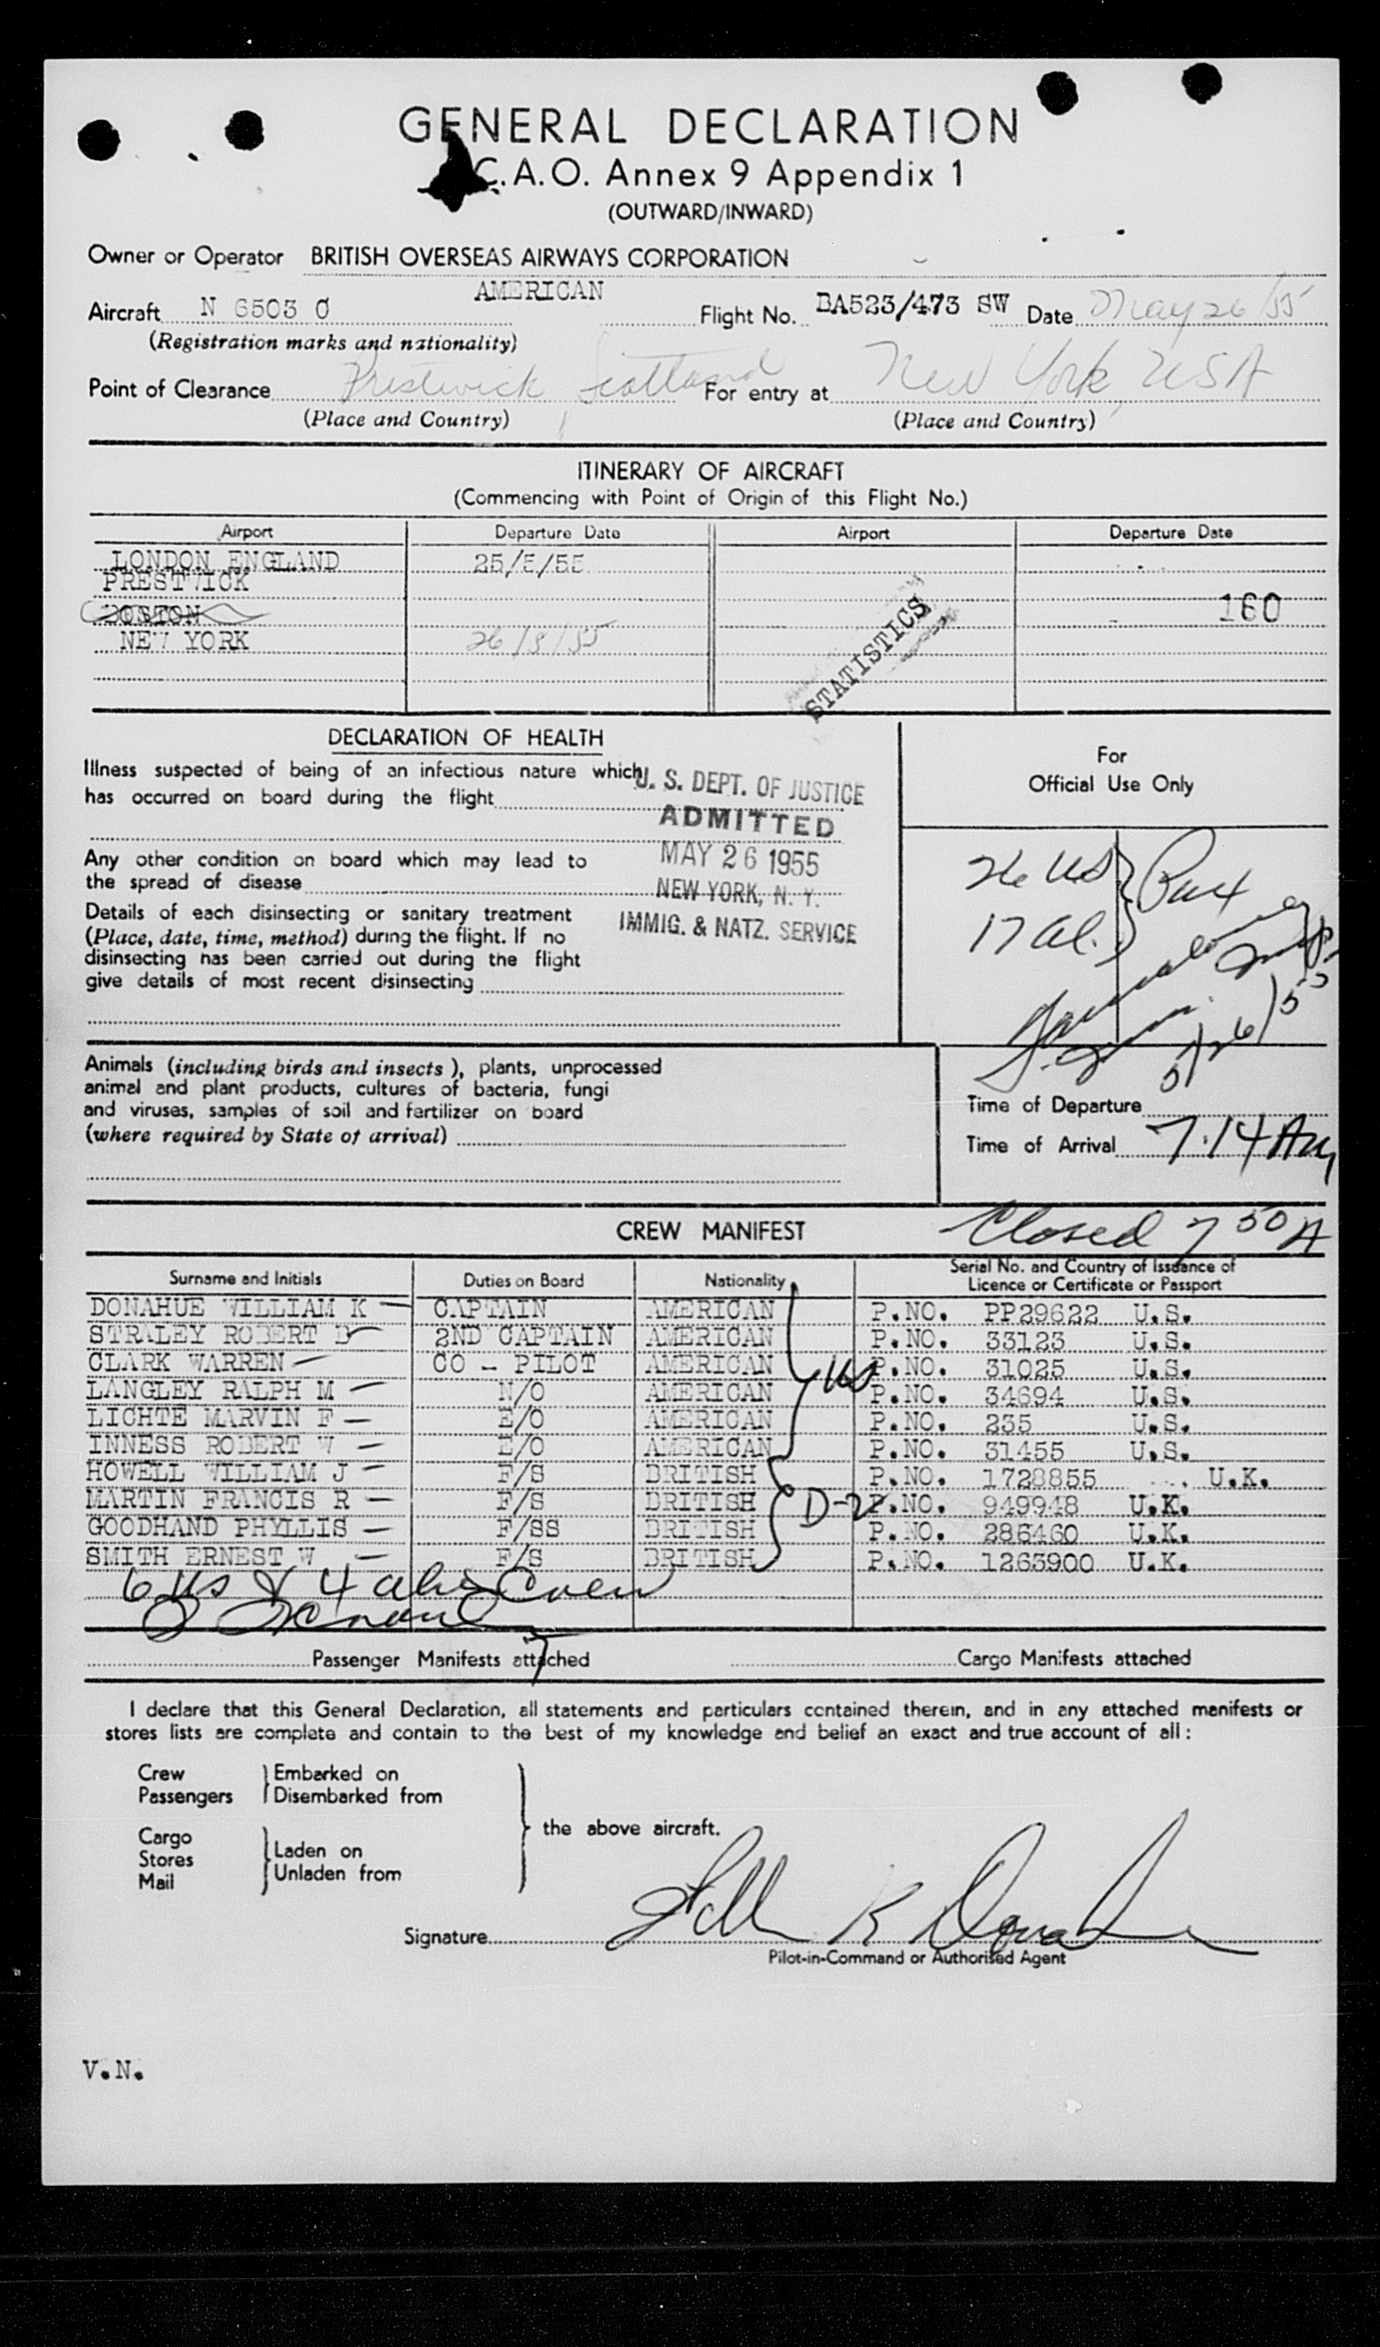 GENERAL DECLARATION
C.A.O. Annex 9 Appendix 1
(OUTWARD/INWARD)
Owner or Operator BRITISH OVERSEAS AIRWAYS CORPORATION
AMERICAN
Aircraft N 6503 C Flight No. BA523/473 SW Date May 26/55
(Registration marks and nationality)
Point of Clearance Prestwick Scotland For entry at New York, USA
(Place and Country) (Place and Country)
ITINERARY OF AIRCRAFT
(Commencing with Point of Origin of this Flight No.)
Airport Departure Date Airport Departure Date
LONDON ENGLAND 25/5/55
PRESTWICK
BOSTON 160
NEW YORK 26/5/55
STATISTICS
DECLARATION OF HEALTH
Illness suspected of being of an infectious nature which
has occurred on board during the flight
Any other condition on board which may lead to
the spread of disease
Details of each disinsecting or sanitary treatment
(Place, date, time, method) during the flight. If no
disinsecting has been carried out during the flight
give details of most recent disinsecting
U. S. DEPT. OF JUSTICE
ADMITTED
MAY 26 1955
NEW YORK, N. Y.
IMMIG. & NATZ. SERVICE
For
Official Use Only
26 US
17 al.
Pax
5/26/55
Animals (including birds and insects), plants, unprocessed
animal and plant products, cultures of bacteria, fungi
and viruses, samples of soil and fertilizer on board
(where required by State of arrival)
Time of Departure
Time of Arrival 7.14 Am
Closed 7 50 A
CREW MANIFEST
Surname and Initials Duties on Board Nationality Serial No. and Country of Issuance of
Licence or Certificate or Passport
DONAHUE WILLIAM K CAPTAIN AMERICAN P.NO. PP29622 U.S.
STRALEY ROBERT D 2ND CAPTAIN AMERICAN P.NO. 33123 U.S.
CLARK WARREN CO - PILOT AMERICAN P.NO. 31025 U.S.
LANGLEY RALPH M N/O AMERICAN P.NO. 34694 U.S.
LICHTE MARVIN F E/O AMERICAN P.NO. 235 U.S.
INNESS ROBERT W E/O AMERICAN P.NO. 31455 U.S.
HOWELL WILLIAM J F/S BRITISH P.NO. 1728855 U.K.
MARTIN FRANCIS R F/S BRITISH P.NO. 949948 U.K.
GOODHAND PHYLLIS F/SS BRITISH P.NO. 286460 U.K.
SMITH ERNEST W F/S BRITISH P.NO. 1263900 U.K.
US
D-2
6 US & 4 alien Crew
Passenger Manifests attached Cargo Manifests attached
I declare that this General Declaration, all statements and particulars contained therein, and in any attached manifests or
stores lists are complete and contain to the best of my knowledge and belief an exact and true account of all:
Crew Embarked on
Passengers Disembarked from
the above aircraft.
Cargo
Stores Laden on
Mail Unladen from
Signature
Pilot-in-Command or Authorised Agent
V.N.